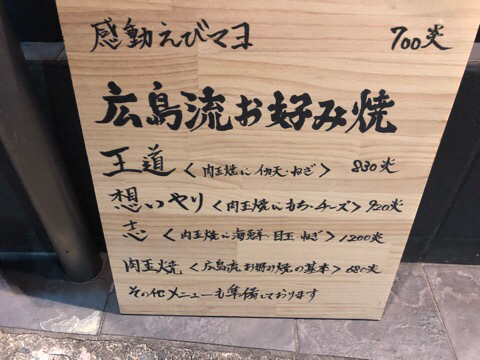 感動えびマヨ 700円
広島流お好み焼
王道 〈肉玉焼にイカ天・ねぎ〉 830円
想いやり 〈肉玉焼にもち・チーズ〉 920円
志 〈肉玉焼に海鮮・目玉・ねぎ〉 1200円
肉玉焼 〈広島流お好み焼の基本〉 680円
その他メニューも準備しております